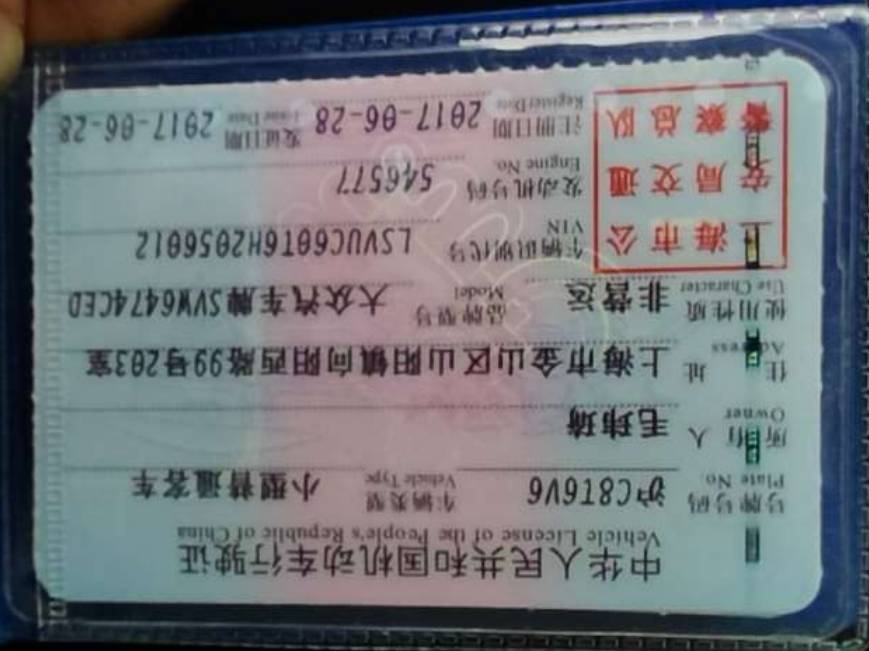 中华人民共和国机动车行驶证
Vehicle License of the People's Republic of China
号牌号码 沪C8T6V6 车辆类型 小型普通客车
Plate No. Vehicle Type
所有人 毛玮琦
Owner
住址 上海市金山区山阳镇向阳西路99号203室
Address
使用性质 非营运 品牌型号 大众汽车牌SVW6474CED
Use Character Model
上海市公
安局交通
警察总队
车辆识别代号 LSVUC60T6H2056012
VIN
发动机号码 546577
Engine No.
注册日期 2017-06-28 发证日期 2017-06-28
Register Date Issue Date